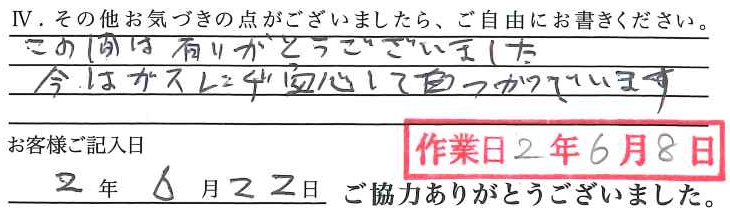 Ⅳ．その他お気づきの点がございましたら、ご自由にお書きください。
この間は有りがとうございました
今はガスレンヂ安心して
います
お客様ご記入日
作業日2年6月8日
2年6月22日
ご協力ありがとうございました。